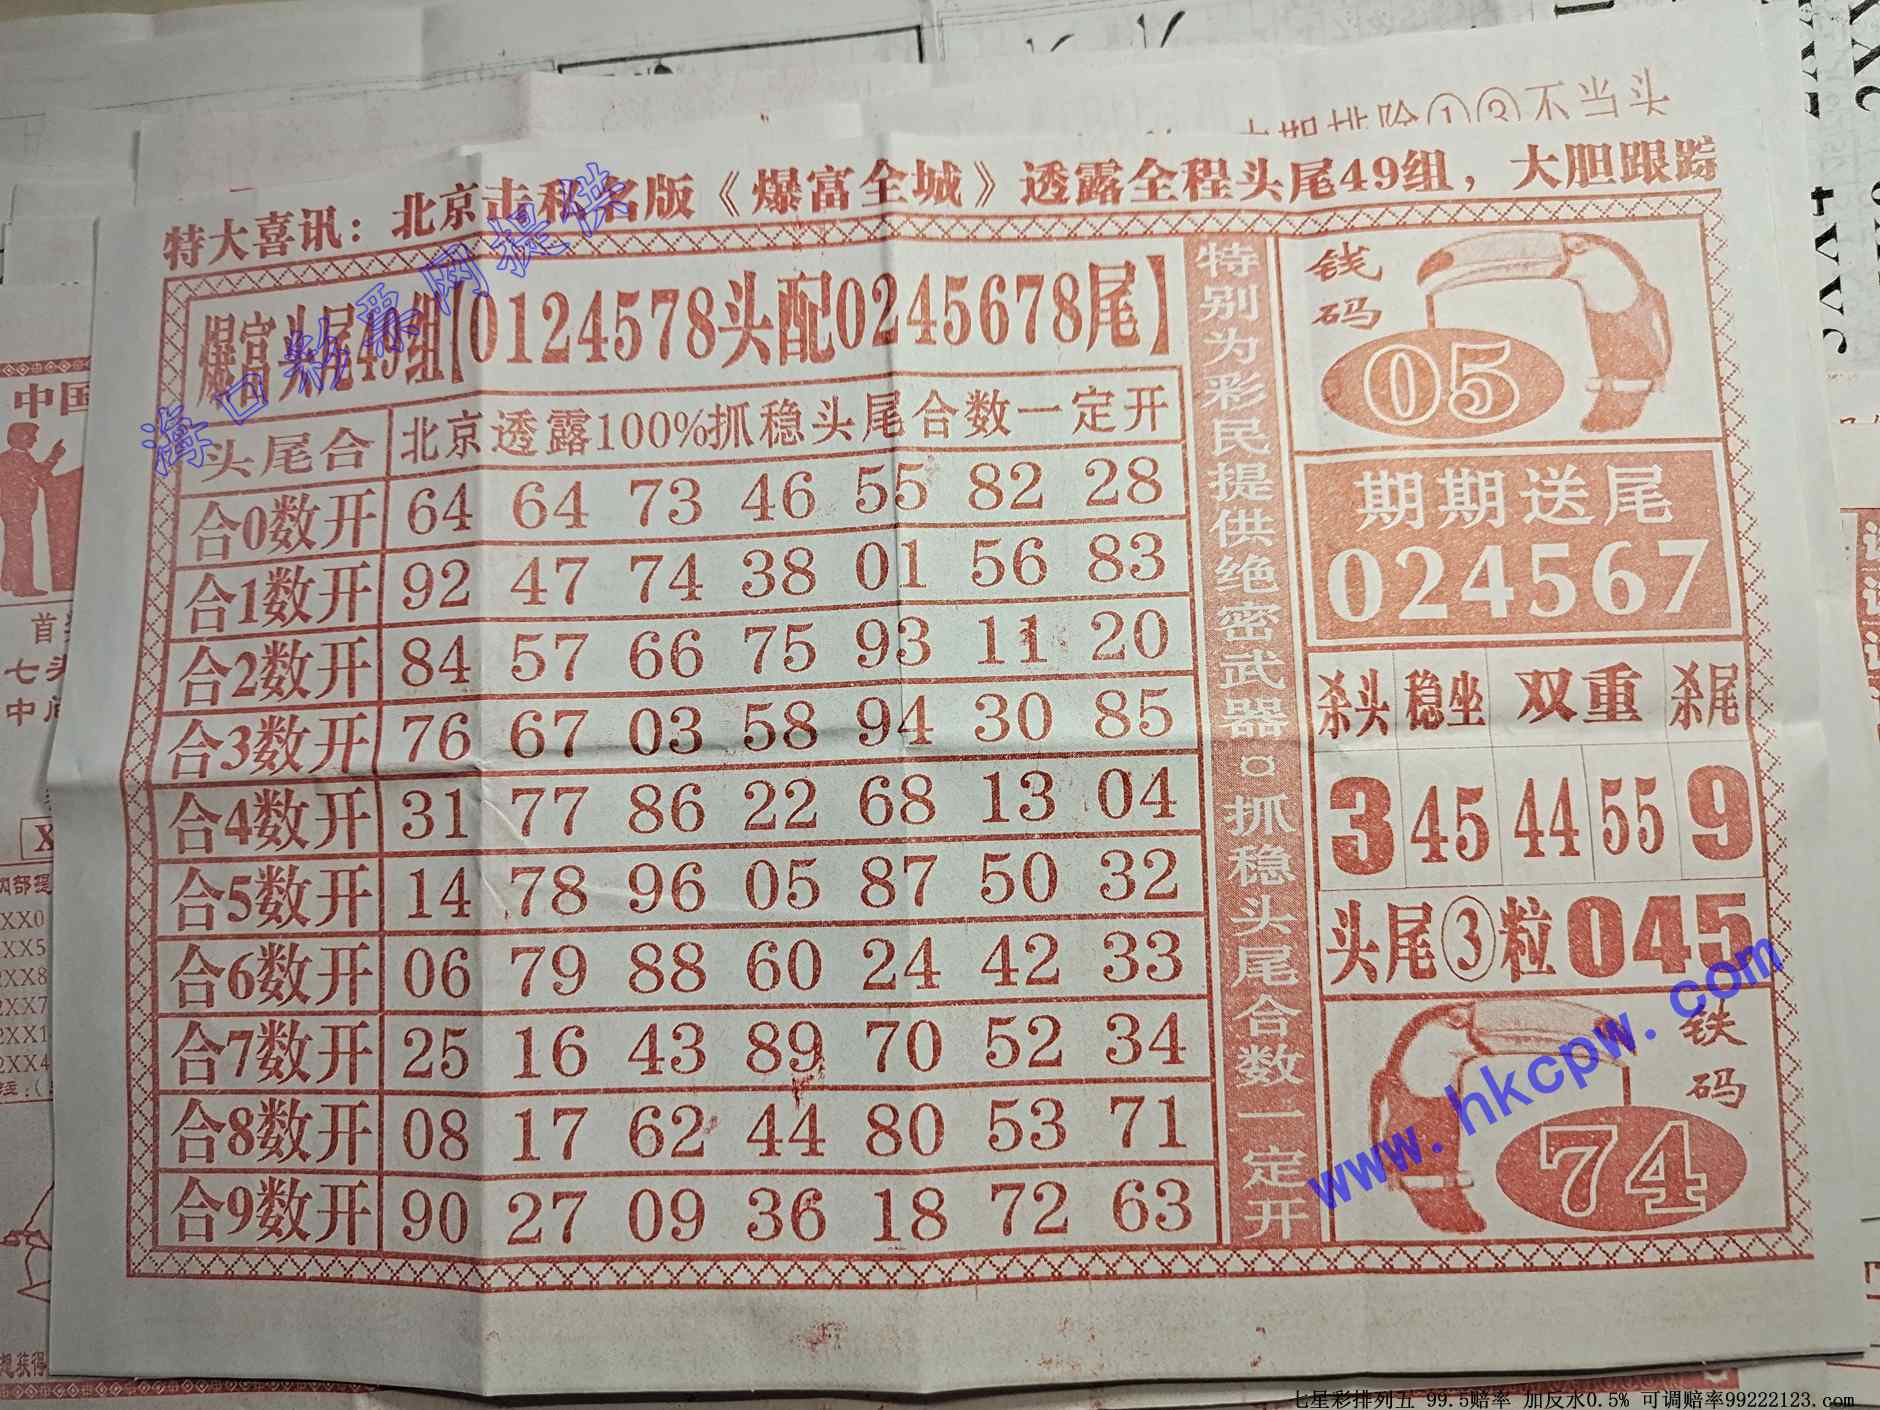 不当头
特大喜讯：北京
名版《爆富全城》透露全程头尾49组，大胆跟踪
海口彩票网提供
爆富头尾49组【0124578头配0245678尾】
头尾合 北京透露100%抓稳头尾合数一定开
合0数开 64 64 73 46 55 82 28
合1数开 92 47 74 38 01 56 83
合2数开 84 57 66 75 93 11 20
合3数开 76 67 03 58 94 30 85
合4数开 31 77 86 22 68 13 04
合5数开 14 78 96 05 87 50 32
合6数开 06 79 88 60 24 42 33
合7数开 25 16 43 89 70 52 34
合8数开 08 17 62 44 80 53 71
合9数开 90 27 09 36 18 72 63
特别为彩民提供绝密武器¤抓稳头尾合数一定开
钱码
05
期期送尾
024567
杀头 稳坐 双重 杀尾
3 45 44 55 9
头尾③粒045
铁码
74
www.hkcpw.com
中国
七星彩排列五 99.5赔率 加反水0.5% 可调赔率99222123.com